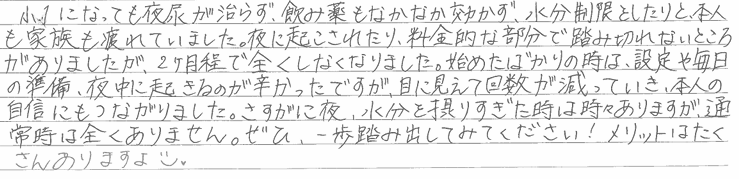 小1になっても夜尿が治らず、飲み薬もなかなか効かず、水分制限としたりと、本人
も家族も疲れていました。夜に起こされたり、料金的な部分で踏み切れないところ
がありましたが、2ヶ月程で全くしなくなりました。始めたばかりの時は、設定や毎日
の準備、夜中に起きるのが辛かったですが、目に見えて回数が減っていき、本人の
自信にもつながりました。さすがに夜、水分を摂りすぎた時は時々ありますが、通
常時は全くありません。ぜひ、一歩踏み出してみてください!メリットはたく
さんありますよ